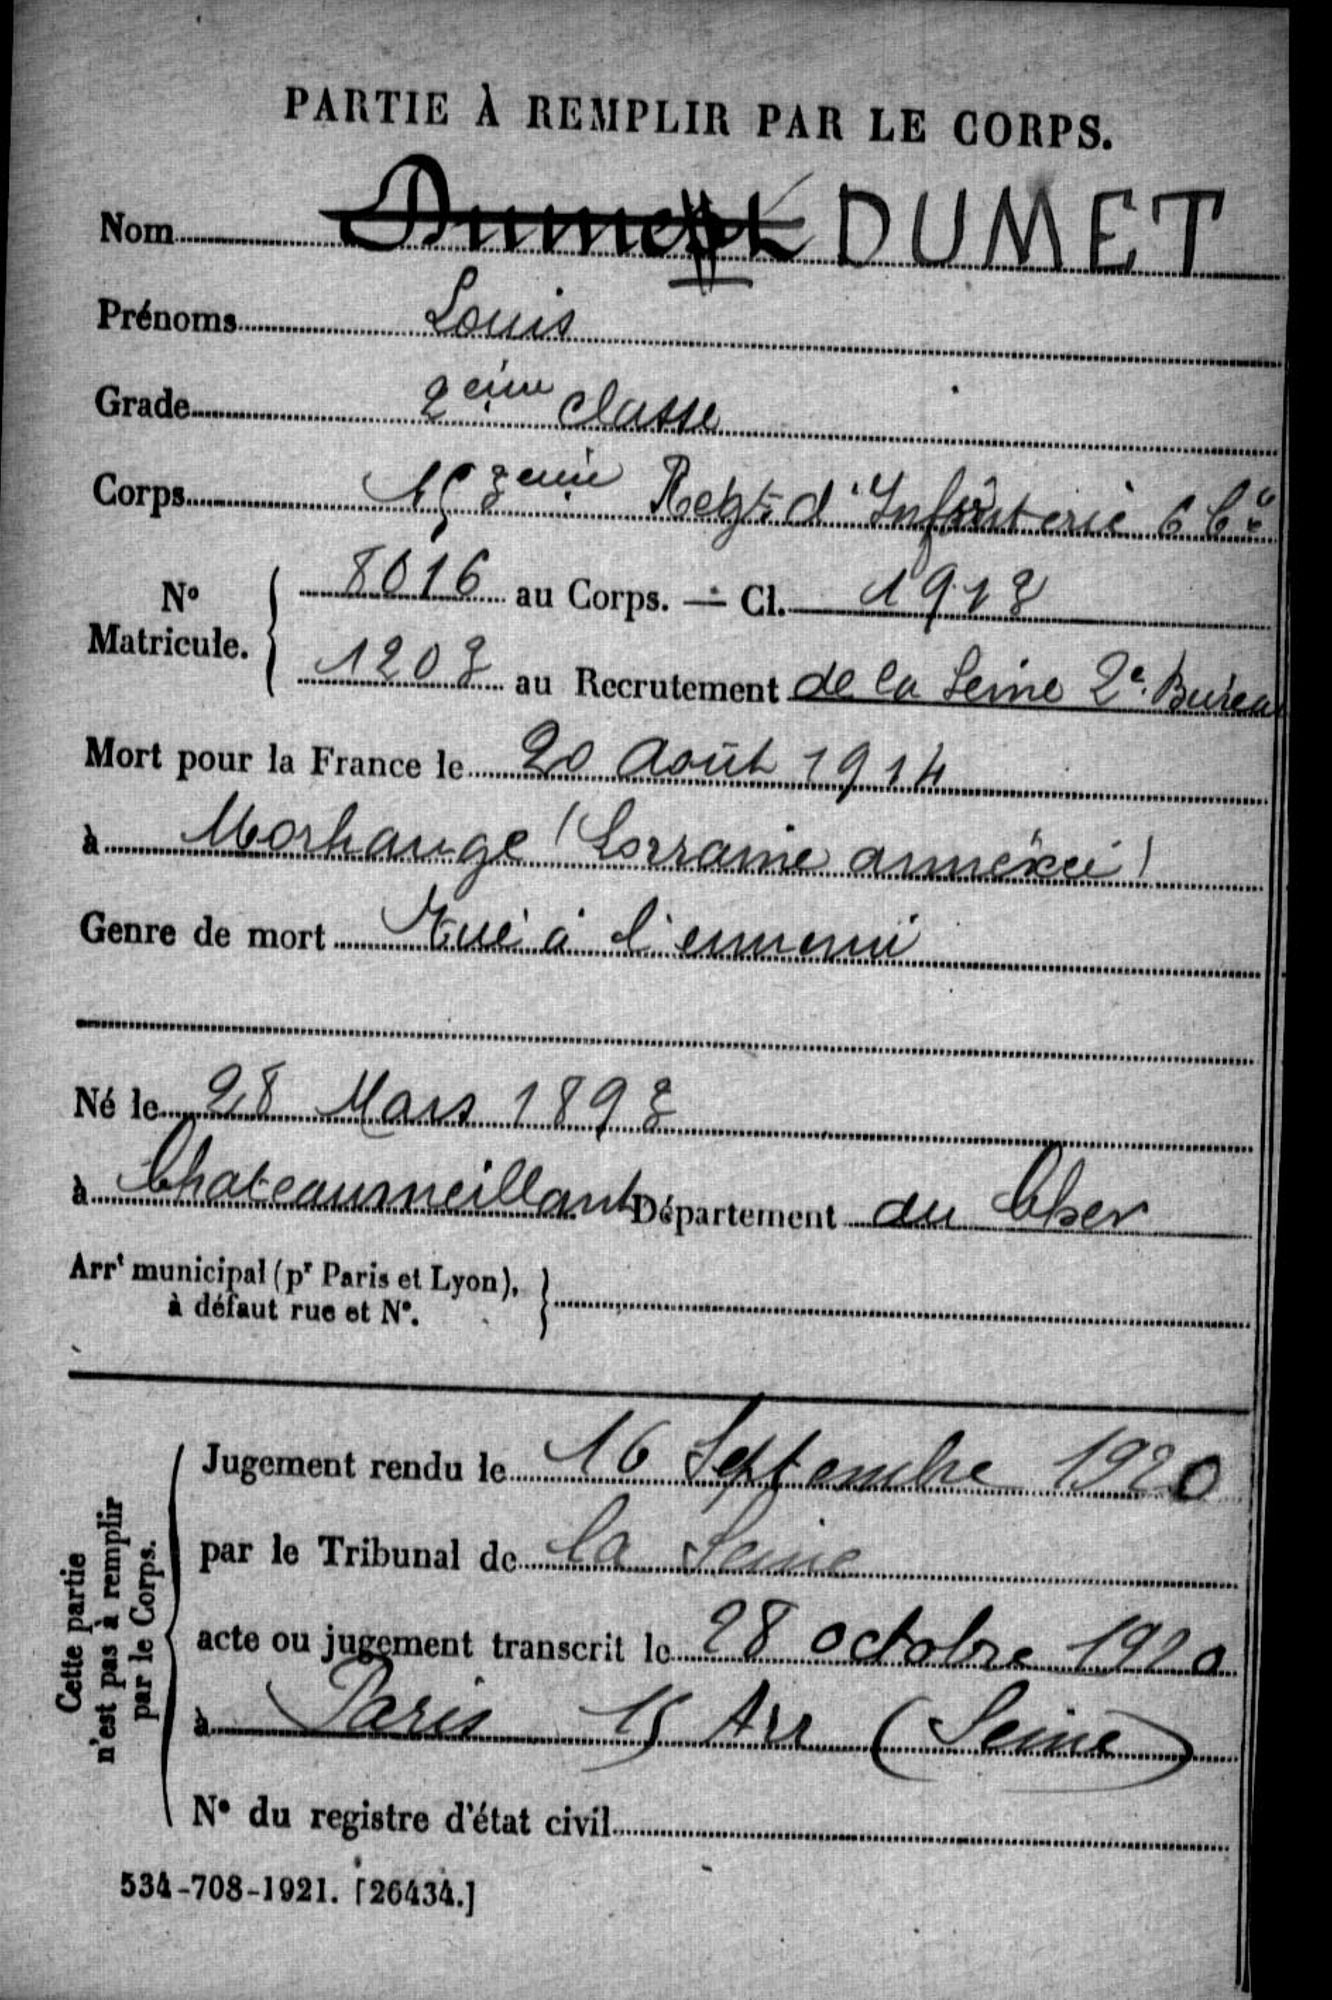 PARTIE À REMPLIR PAR LE CORPS.
Nom DUMET
Prénoms Louis
Grade 2eme classe
Corps 153eme Regt d'Infanterie 6 Cie
No Matricule. 8016 au Corps. — Cl. 1913
1203 au Recrutement de la Seine 2e Bureau
Mort pour la France le 20 Août 1914
à Morhange (Lorraine annexée)
Genre de mort Tué à l'ennemi
Né le 28 Mars 1893
à Chateaumeillant Département du Cher
Arrt municipal (pr Paris et Lyon),
à défaut rue et No.
Cette partie
n'est pas à remplir
par le Corps.
Jugement rendu le 16 Septembre 1920
par le Tribunal de la Seine
acte ou jugement transcrit le 28 octobre 1920
à Paris 15 Arr (Seine)
No du registre d'état civil
534-708-1921. [26434.]